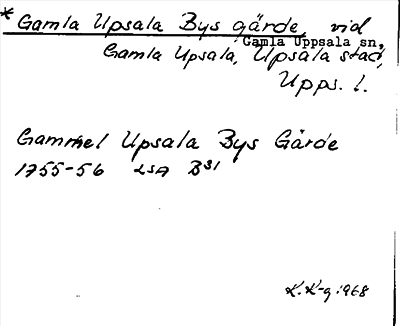 * Gamla Upsala Bys gärde, vid
Gamla Uppsala sn,
Gamla Upsala, Upsala stad,
Upps. l.
Gammel Upsala Bys Gärde
1755-56 LSA B31
K.K-g 1968